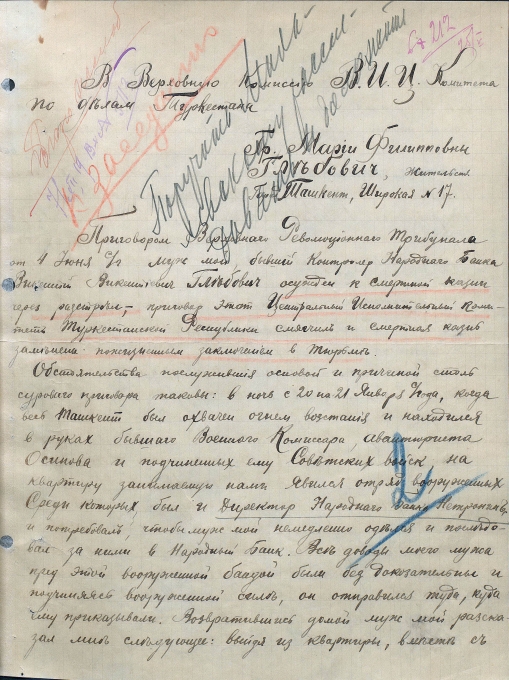 В Верховную Комиссию В.И.Ц. Комитета
по делам Туркестана
Гр. Марiи Филипповны
Глѣбовичъ, жительств.
Гор. Ташкент, Широкая N 17.
Поручить
К заседанию
212
Приговором Верховного Революционного Трибунала
от 4 Июня с/г муж мой бывший Контролер Народнаго Банка
Викентий Викентьевич Глѣбович осужден к смертной казни
через разстрѣл, – приговор этот Центральный Исполнительный Коми-
тетъ Туркестанской Республики смягчил и смертная казнь
заменена пожизненным заключением в тюрьмѣ.
Обстоятельства послужившия основой и причиной столь
суроваго приговора таковы: в ночь с 20 на 21 Января с/года, когда
весь Ташкент был охвачен огнем возстания и находился
в руках бывшаго Военнаго Комисара, авантюриста
Осипова и подчиненных ему Совѣтских войск на
квартиру занимаемую нами явился отряд вооруженных
Среди которых был и Директор Народнаго Банка
и потребовалъ чтобы муж мой немедленно одѣлся и послѣдо-
вал за ними в Народный Банк. Всѣ доводы моего мужа
пред этой вооруженной бандой были бездоказательны и
подчиняясь вооруженной силѣ, он отправился туда, куда
ему приказывали. Возвратившись домой муж мой разска-
зал мнѣ слѣдующее: выйдя из квартиры, вместѣ съ
2